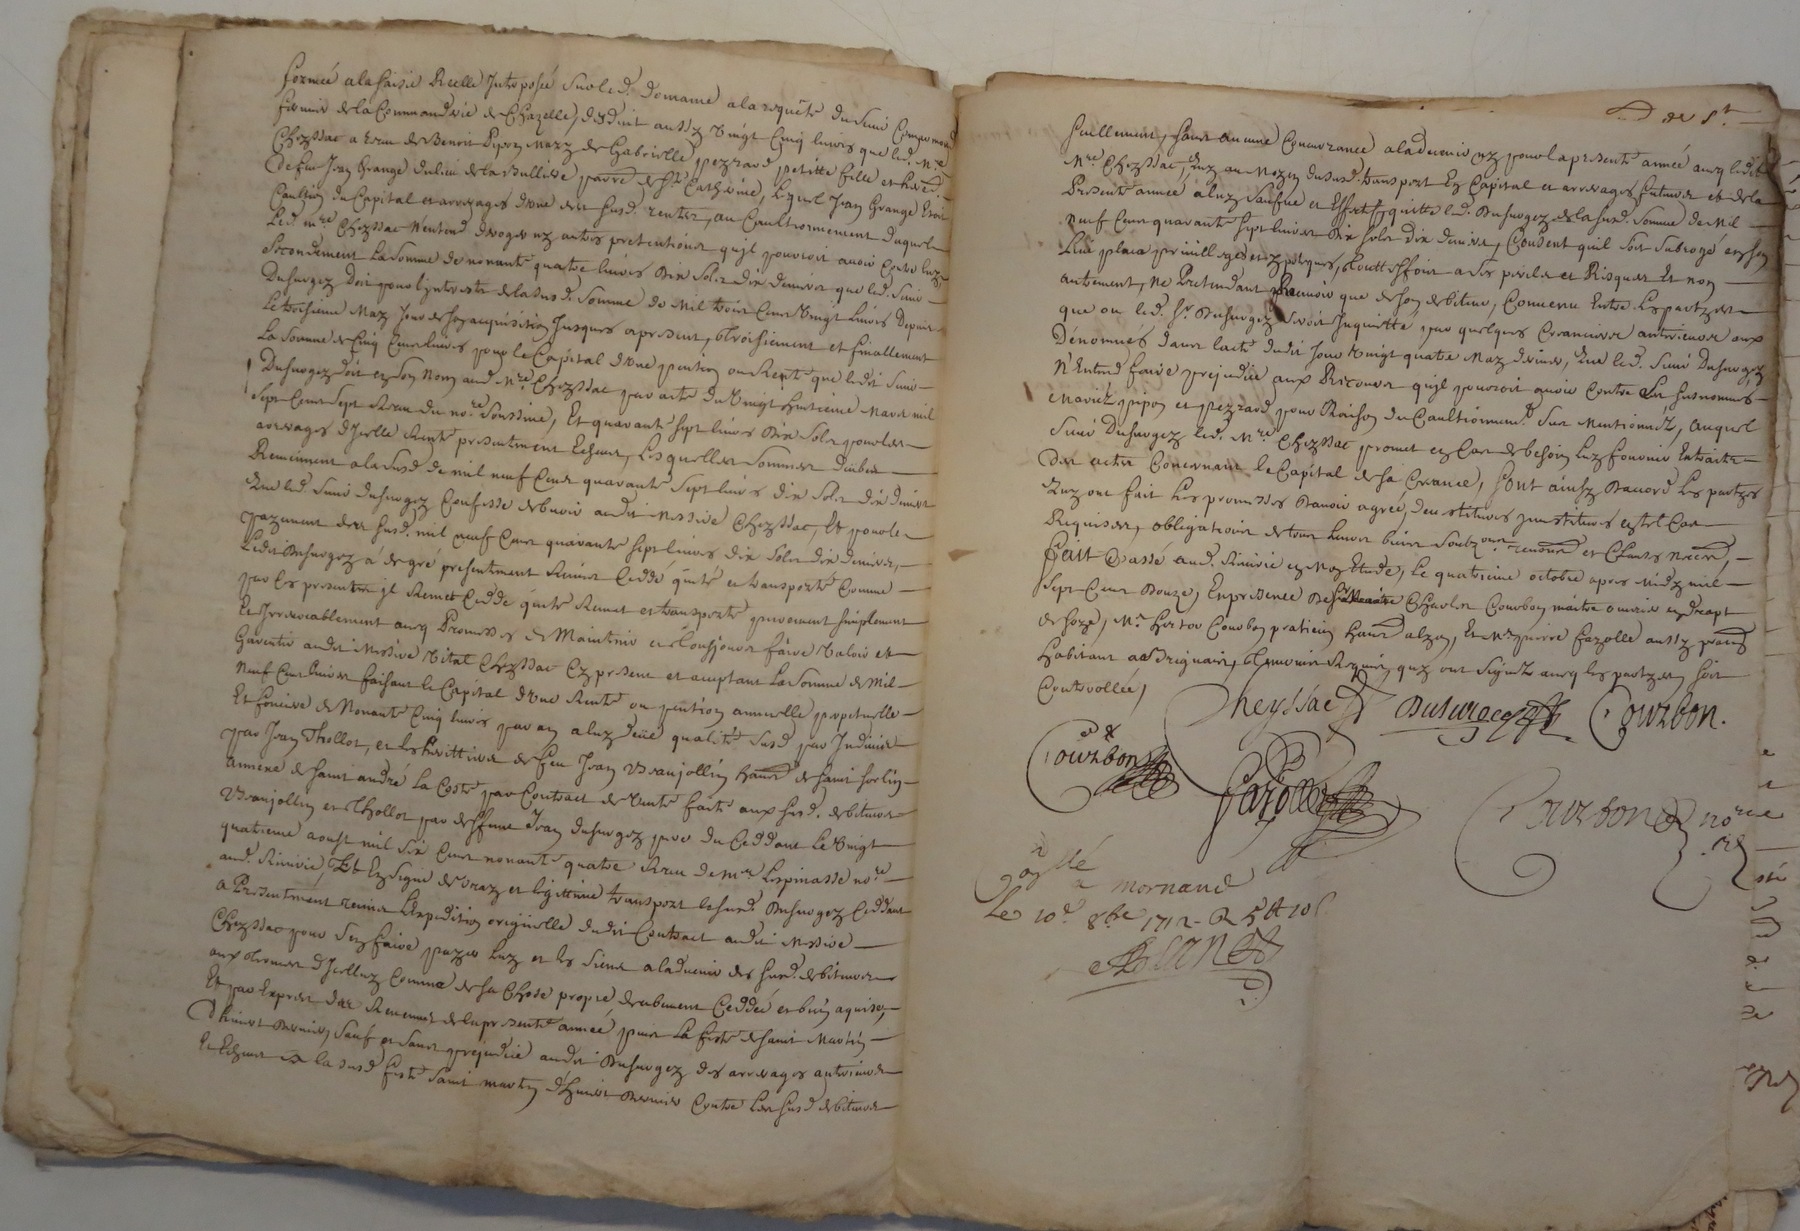 formée a la saisie Reelle Interposée sur led. domaine a la requête du sieur
fermier de la Commanderie de Chazelle, desduit aussy Vingt Cinq livres que led. Mre
Cheyssac a receu de Benoit Pipon mary de Gabrielle peyrard petitte fille et herit.
de feu Jean Grange du lieu de la Bulliere parre de Ste Catherine, Lequel Jean Grange Etoit
Caultion du Capital et arrerages d'une des susd. rentes, au Caultionnement duquel
Led. mre Cheyssac N'entend deroger ny autres pretentions qu'jl pourroit avoir Contre luy
Secondement La somme de nonante quatre livres Dix sols dix deniers que led. sieur
Dusurgey Doit pour l'jnterests de la susd. somme de Mil trois Cens Vingt livres depuis
Le troisieme May Jour de son acquisition Jusques apresent, Troisiement et finallement
La somme de Cinq Cens livres pour le Capital d'Une pention ou Rente que ledit sieur
Dusurgey doit en son Nom aud. Mre Cheyssac par acte du Vingt huitieme Mars mil
sept Cens sept Receu du nore Soussigné, Et quarante sept livres Dix sols pour les
arrerages d'jcelle Rente presentement Echeus, Lesquelles sommes diubes
Reviennent a la susd. de mil neuf Cens quarante sept livres dix sols dix deniers
Que led. sieur dusurgey Confesse debvoir audit Messire Cheyssac, Et pour le
payement des susd. mil neuf Cens quarante sept livres dix sols dix deniers,
Ledit Dusurgey a de gré presentement Remis Ceddé quitté et transporté Comme
par les presentes jl Remet Cedde quitte Remet et transporte purement simplement
Et Jrrevocablement avec Promesses de Maintenir et Tousjours faire Valoir et
Garentir audit Messire Vital Cheyssac Cy present et acceptant La somme de Mil
Neuf Cens livres faisant le Capital d'Une Rente ou pention annuelle perpetuelle
Et fonciere de Nonante Cinq livres par an a luy deüe qualité susd. par Indivis
par Jean Thollot, et les heritiers de feu Jean Beaujollin habit. de saint sorlin
annexe de saint andré la Coste par Contract de Vente faite aux susd. debiteurs
Beaujollin et Thollot par deffunt Jean Dusurgey pere du Ceddant Le Vingt
quatrieme aoust mil six Cens nonante quatre Receu de mre Lespinasse nore
aud. Riverie, Et En signe de Vray et legittime transport le susd. Dusurgey Ceddant
a Presentement remis L'expedition originelle dudit Contract audit Messire
Cheyssac pour s'en faire payer luy et les siens a l'advenir des susd. debiteurs
aux termes d'Jcelluy Comme de sa Chose propre deubement Ceddée et bien aquise,
Et par Exprés des Revenus de la presente année pour La feste de saint Martin
d'hiver dernier, sauf et sans prejudice audit Dusurgey des arrerages anterieurs
Et Echeus a la susd. feste saint martin d'hiver dernier Contre les susd. debiteurs
seullement, sans aucune Concurrance a l'advenir ny pour la presente année avec ledit
Mre Cheyssac, Luy au Moyen du susd. transport En Capital et arrerages futurs et de la
Presente année a luy sauf ... quitte led. Dusurgey de la susd. somme de Mil
neuf Cens quarante sept livres dix sols dix deniers, Consent qu'il soit subrogé en son
Lieu place privilleges et ypoteques, Touttesfois a ses perils et Risques Et non
autrement, Ne Pretendant Recevoir que de son debiteur, Convenu Entre Les partyes
que ou led. sr. Dusurgey seroit Inquietté par quelques Creanciers anterieurs aux
Dénommés dans l'acte dudit Jour Vingt quatre May dernier, Que led. sieur Dusurgey
N'Entend faire prejudice aux Recours qu'jl pourroit avoir Contre les susnommés
mariéz pipon et peyrard pour Raison du Caultionnemt. sus Mentionnéz, auquel
sieur Dusurgey led. Mre Cheyssac promet en Cas de besoin luy fournir Extraits
des actes Concernant le Capital de sa Creance, sont ainsy Daccord les partyes
Quy ont fait les promesses Davoir agréé, ... en tel Cas
Requises, obligations de tous leurs biens soubz. renons. et Clauses necess.
fait & Passé aud. Riverie en Mon Etude, Le quatrieme octobre apres Midy mil
sept Cens Douze, En presence de Charles Courbon maitre ouvrier en drapt
de soye, Mre hector Courbon praticien habit. a lyon, Et Mre pierre fazolle aussy pratic.
habitant a Brignais, Temoins Requis, quy ont signéz avec les partyes, soit
Controllée,
Cheyssac Dusurgey Courbon.
Courbon
fazolle
Courbon nore
Controllé
a mornand
Le 10e 8bre 1712 - R 5 lt 10 s